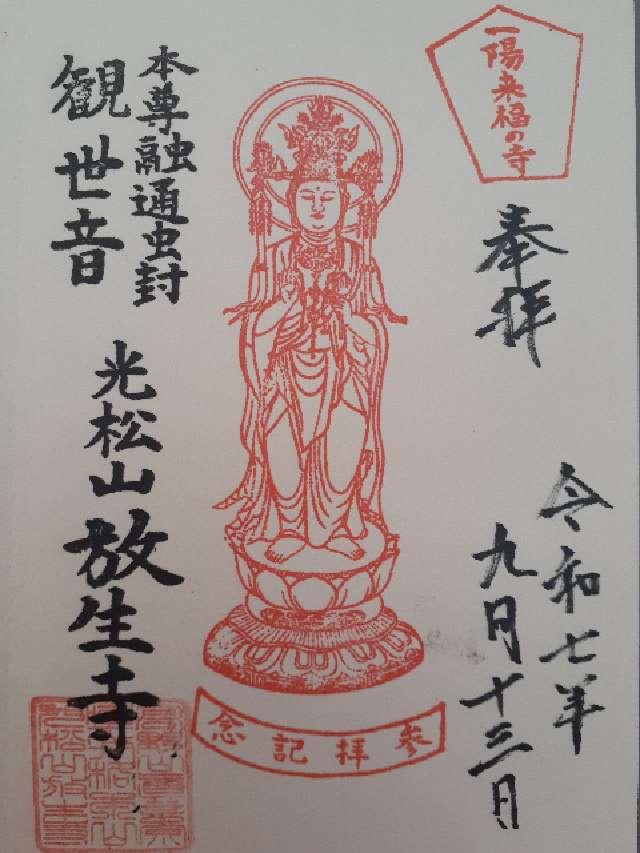 一陽来福の寺
奉拝
令和七年
九月十三日
参拝記念
本尊融通虫封
観世音
光松山放生寺